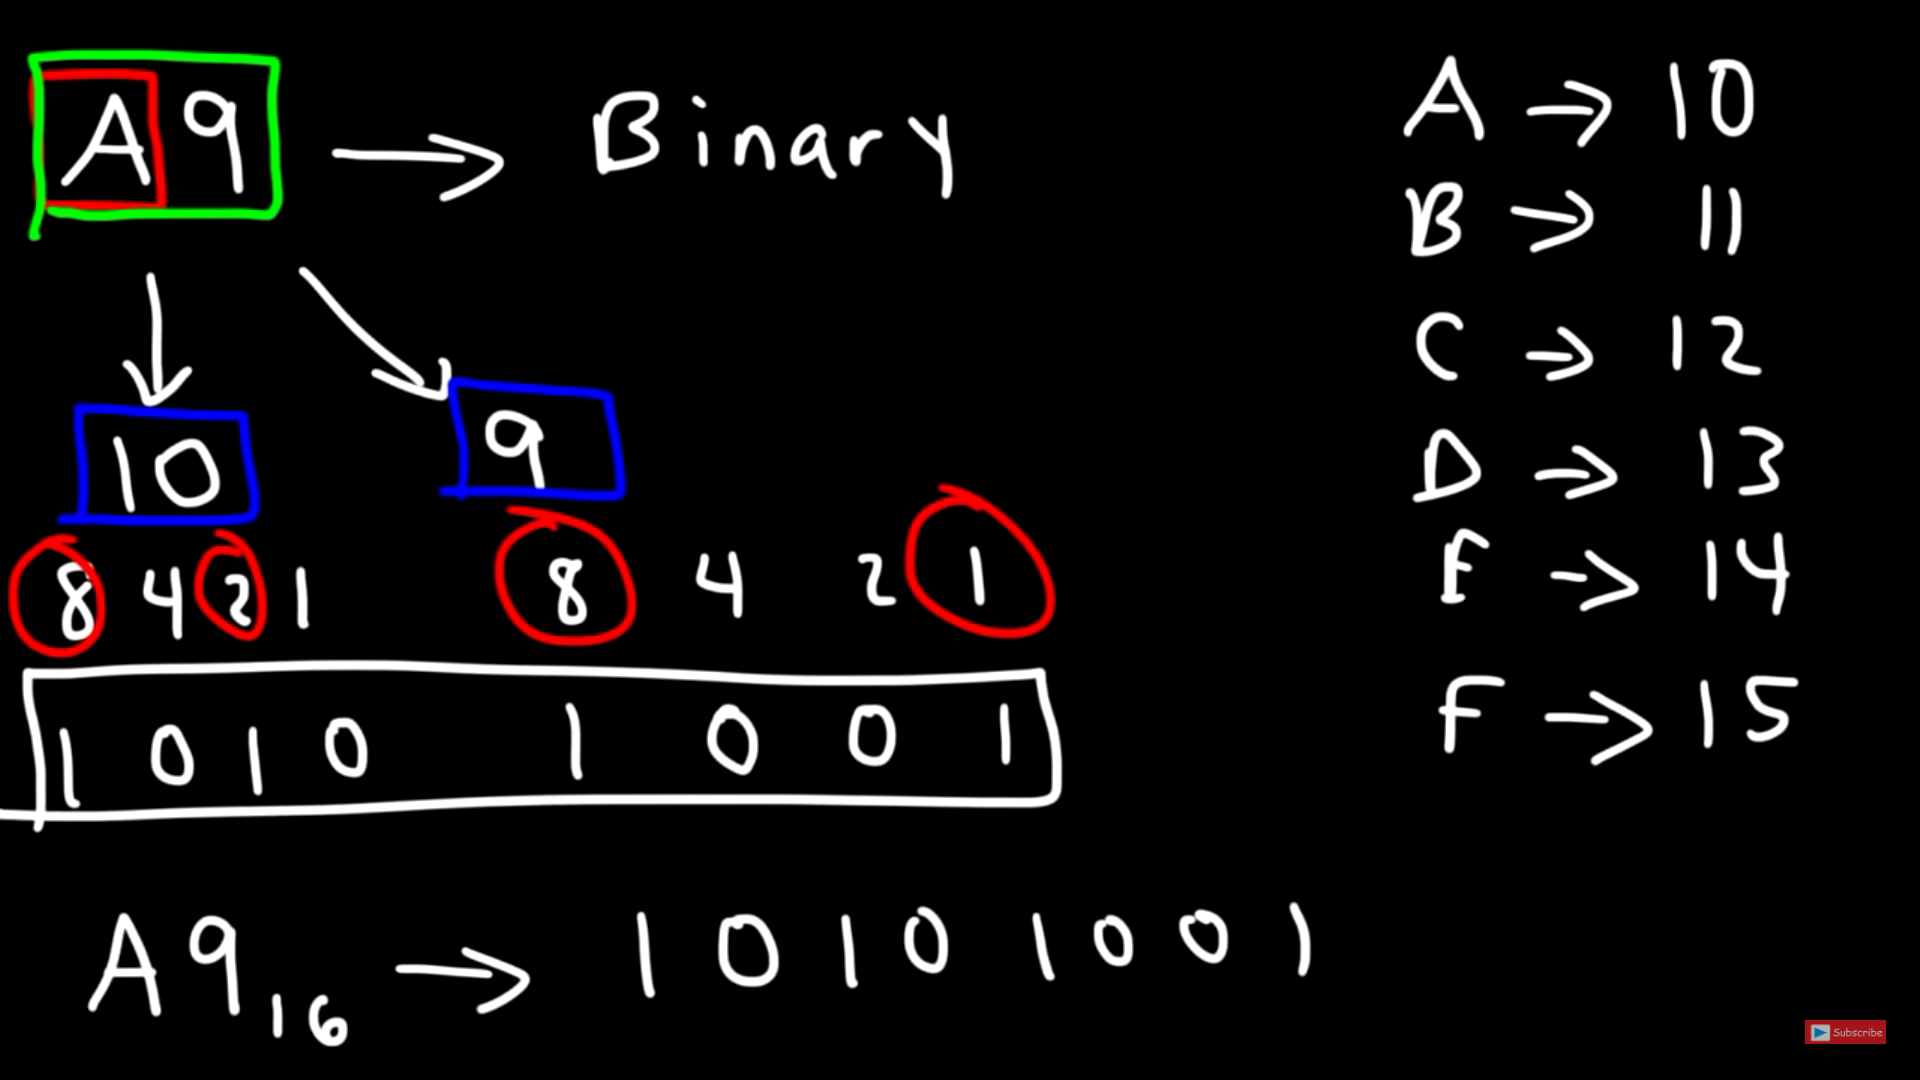 A9 → Binary
10 9
8 4 2 1 8 4 2 1
1 0 1 0 1 0 0 1
A9₁₆ → 1 0 1 0 1 0 0 1
A → 10
B → 11
C → 12
D → 13
E → 14
F → 15
Subscribe